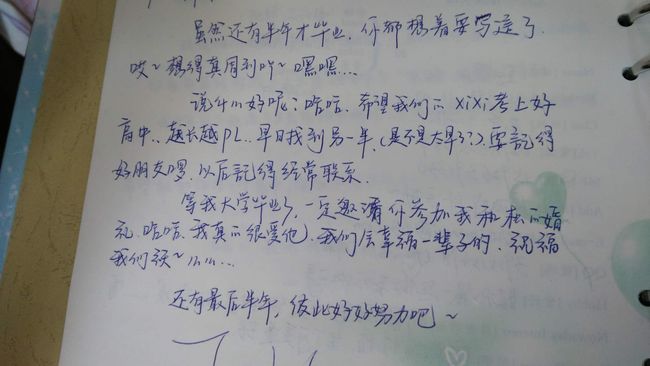 虽然还有半年才毕业，你都想着要写这了.
哎~想得真周到吖~嘿嘿...
说什么好呢？哈哈、希望我们的xixi考上好
高中、越长越PL..早日找到另一半，(是不是太早了?)、要記得
好朋友哦、以后記得经常联系.
等我大学毕业了，一定邀请你参加我和松的婚
礼、哈哈、我真的很爱他、我们会幸福一辈子的、祝福
我们哦~
还有最后半年，彼此好好努力吧~